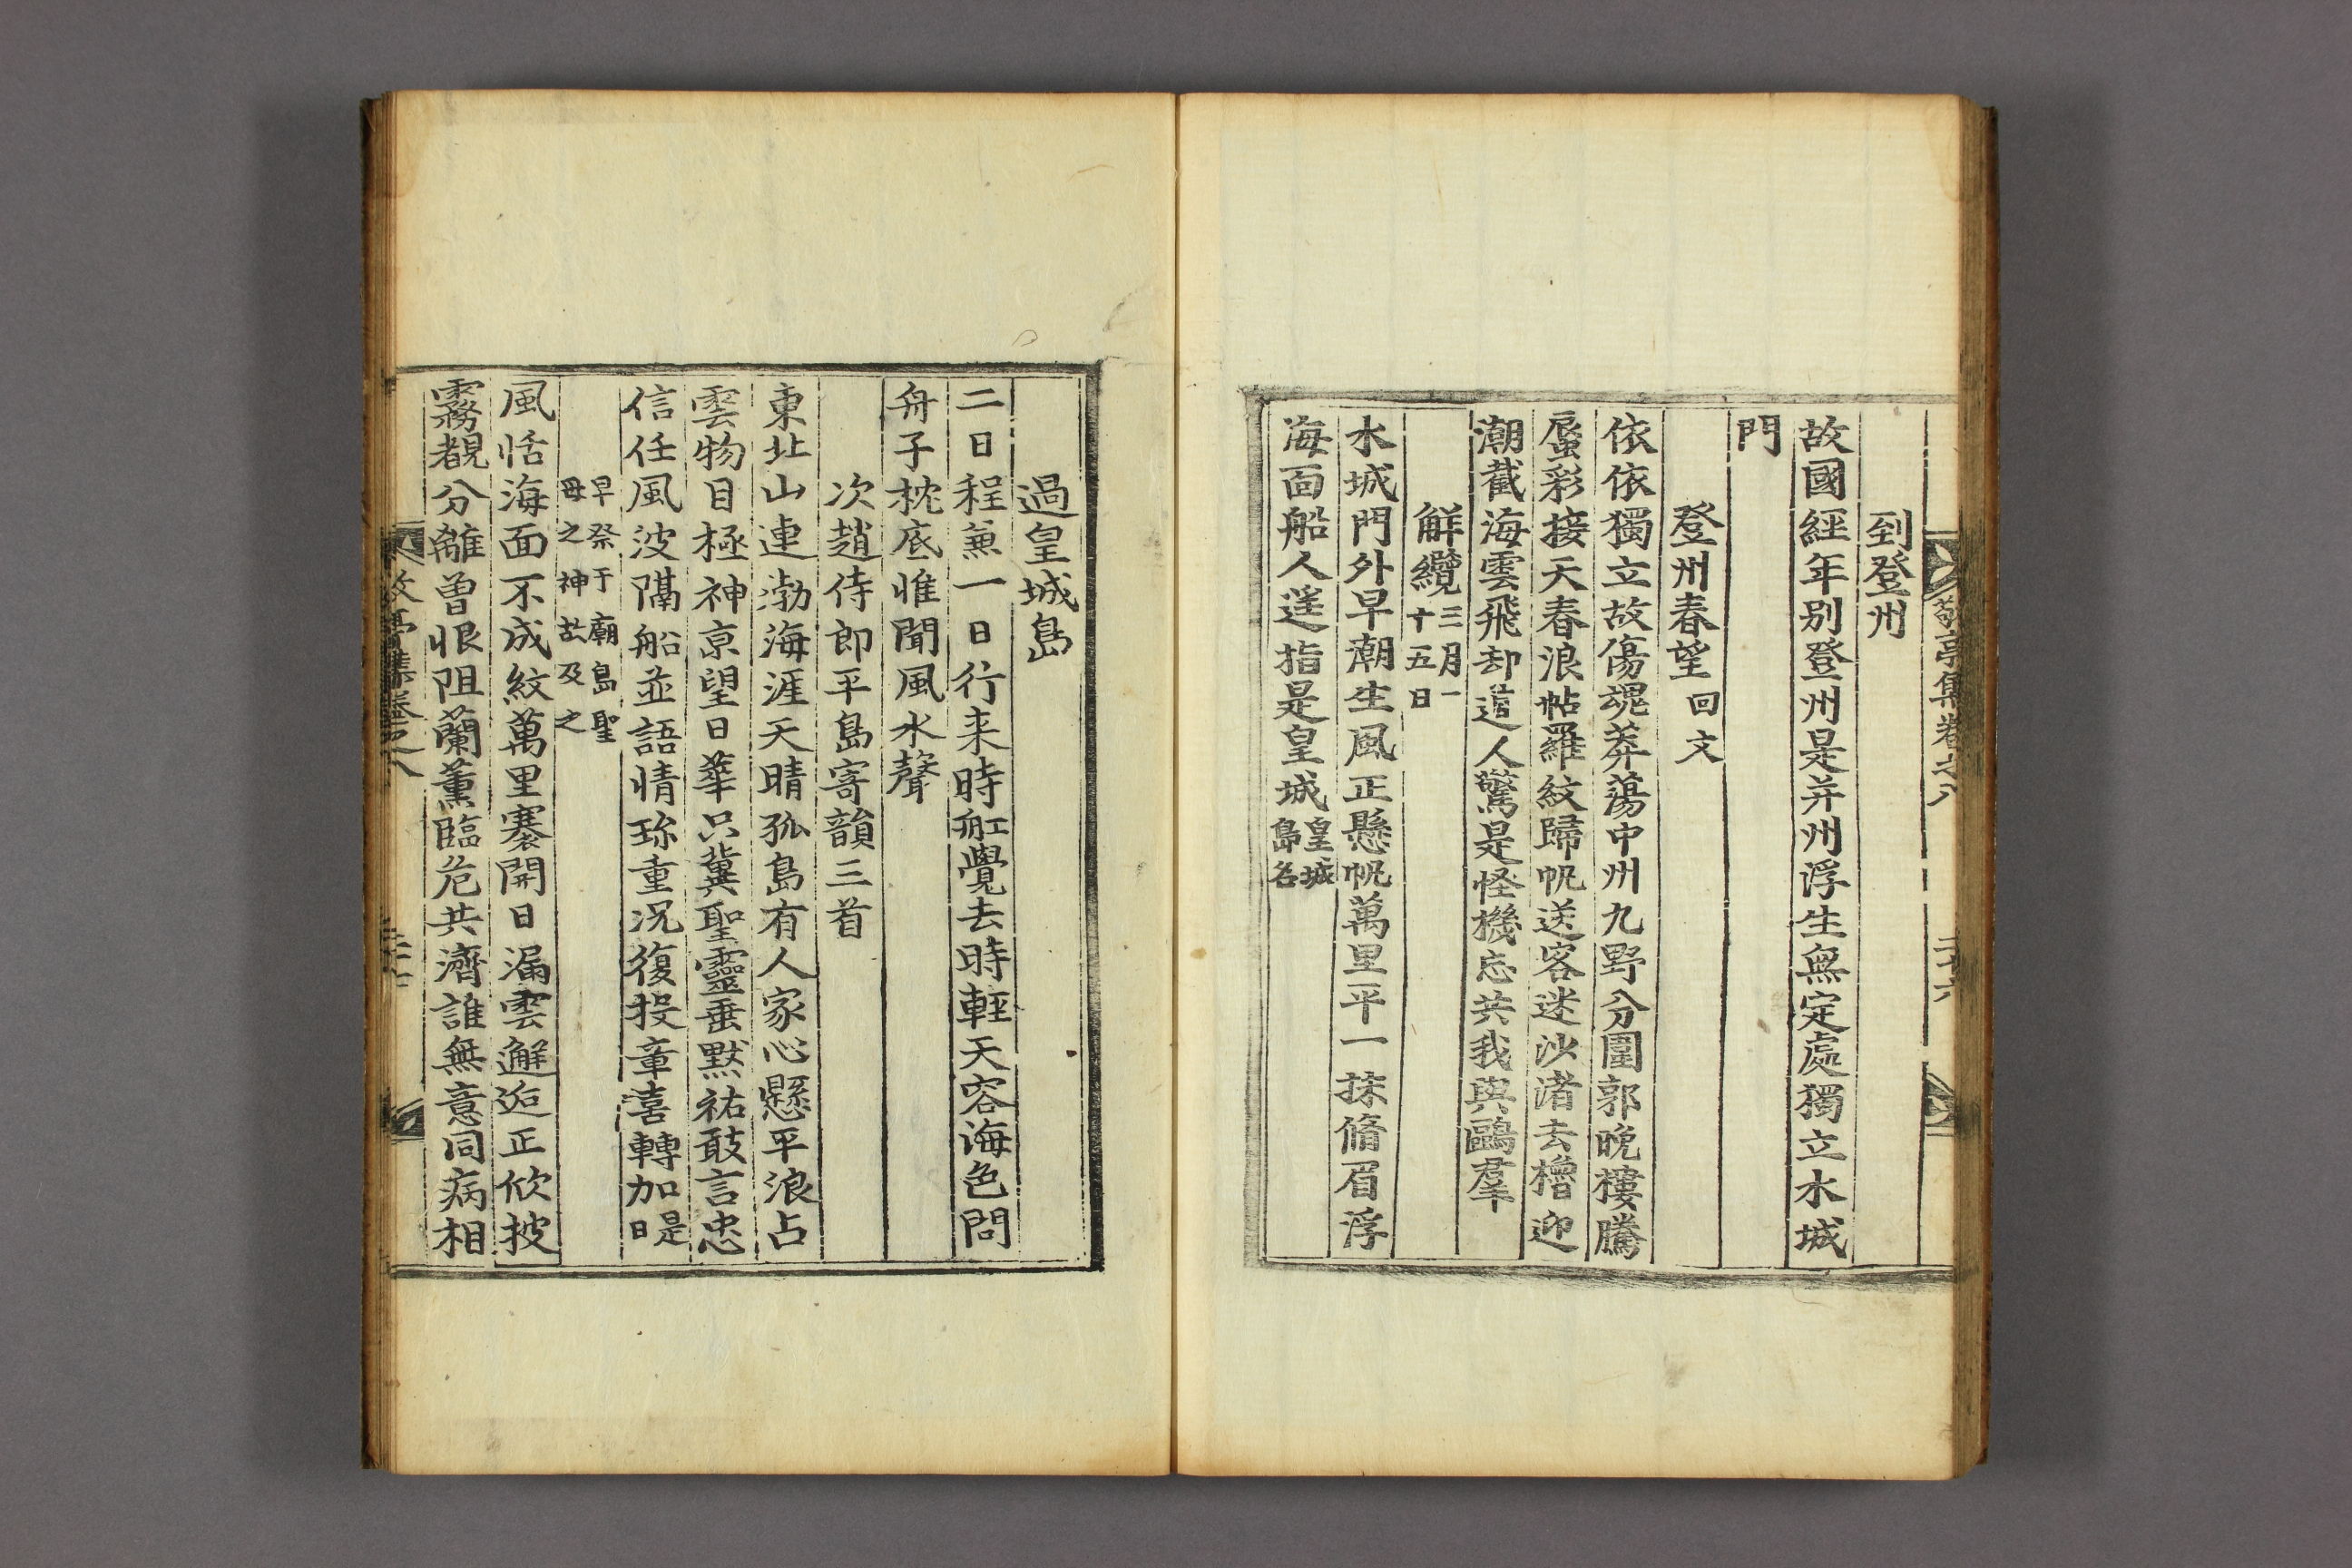 敬亭集卷之八
二十六
到登州
故國經年別登州是并州浮生無定處獨立水城
門
登州春望回文
依依獨立故傷魂莽蕩中州九野分圍郭晩樓騰
蜃彩接天春浪帖羅紋歸帆送客迷沙渚去檣迎
潮截海雲飛却逆人驚是怪機忘共我與鷗羣
解纜三月一
十五日
水城門外早潮生風正懸帆萬里平一抹脩眉浮
海面船人遥指是皇城皇城
島名
過皇城島
二日程兼一日行来時舡覺去時輕天容海色問
舟子枕底惟聞風水聲
次趙侍郎平島寄韻三首
東北山連渤海涯天晴孤島有人家心懸平浪占
雲物目極神京望日華只冀聖靈垂默祐敢言忠
信任風波隔船並語情珎重况復投章喜轉加是
日
早祭于廟島聖
母之神故及之
風恬海面不成紋萬里褰開日漏雲邂逅正欣披
霧覩分離曾恨阻蘭薰臨危共濟誰無意同病相
敬亭集卷之八